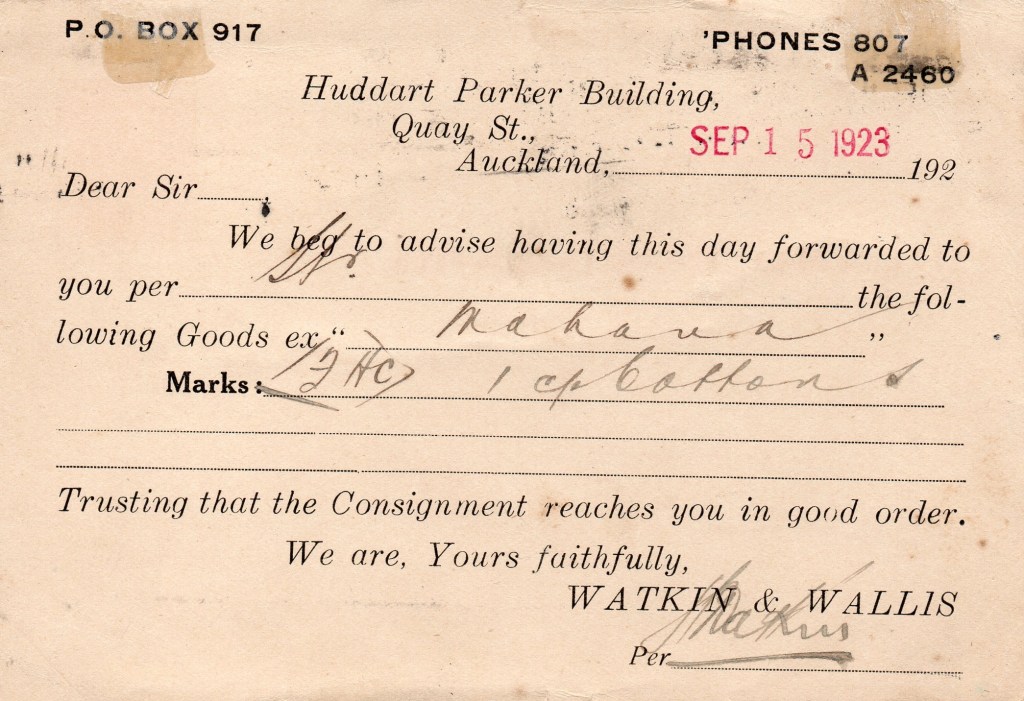 P.O. BOX 917
'PHONES 807
A 2460
Huddart Parker Building,
Quay St.,
Auckland, SEP 15 1923 192
Dear Sir
We beg to advise having this day forwarded to
you per the fol-
lowing Goods ex "Mahana"
Marks: 1 Cottons
Trusting that the Consignment reaches you in good order.
We are, Yours faithfully,
WATKIN & WALLIS
Per Watkin